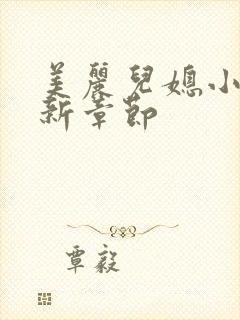 美麗兒媳小
新章節
覃毅